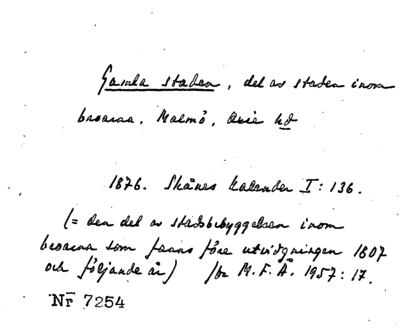 Gamla staden, del av staden inom
broarna. Malmö, Oxie hd
1876. Skånes kalender I: 136.
(= den del av stadsbebyggelsen inom
broarna som fanns före utvidgningen 1807
och följande år) M.F.Å. 1957: 17.
Nr 7254